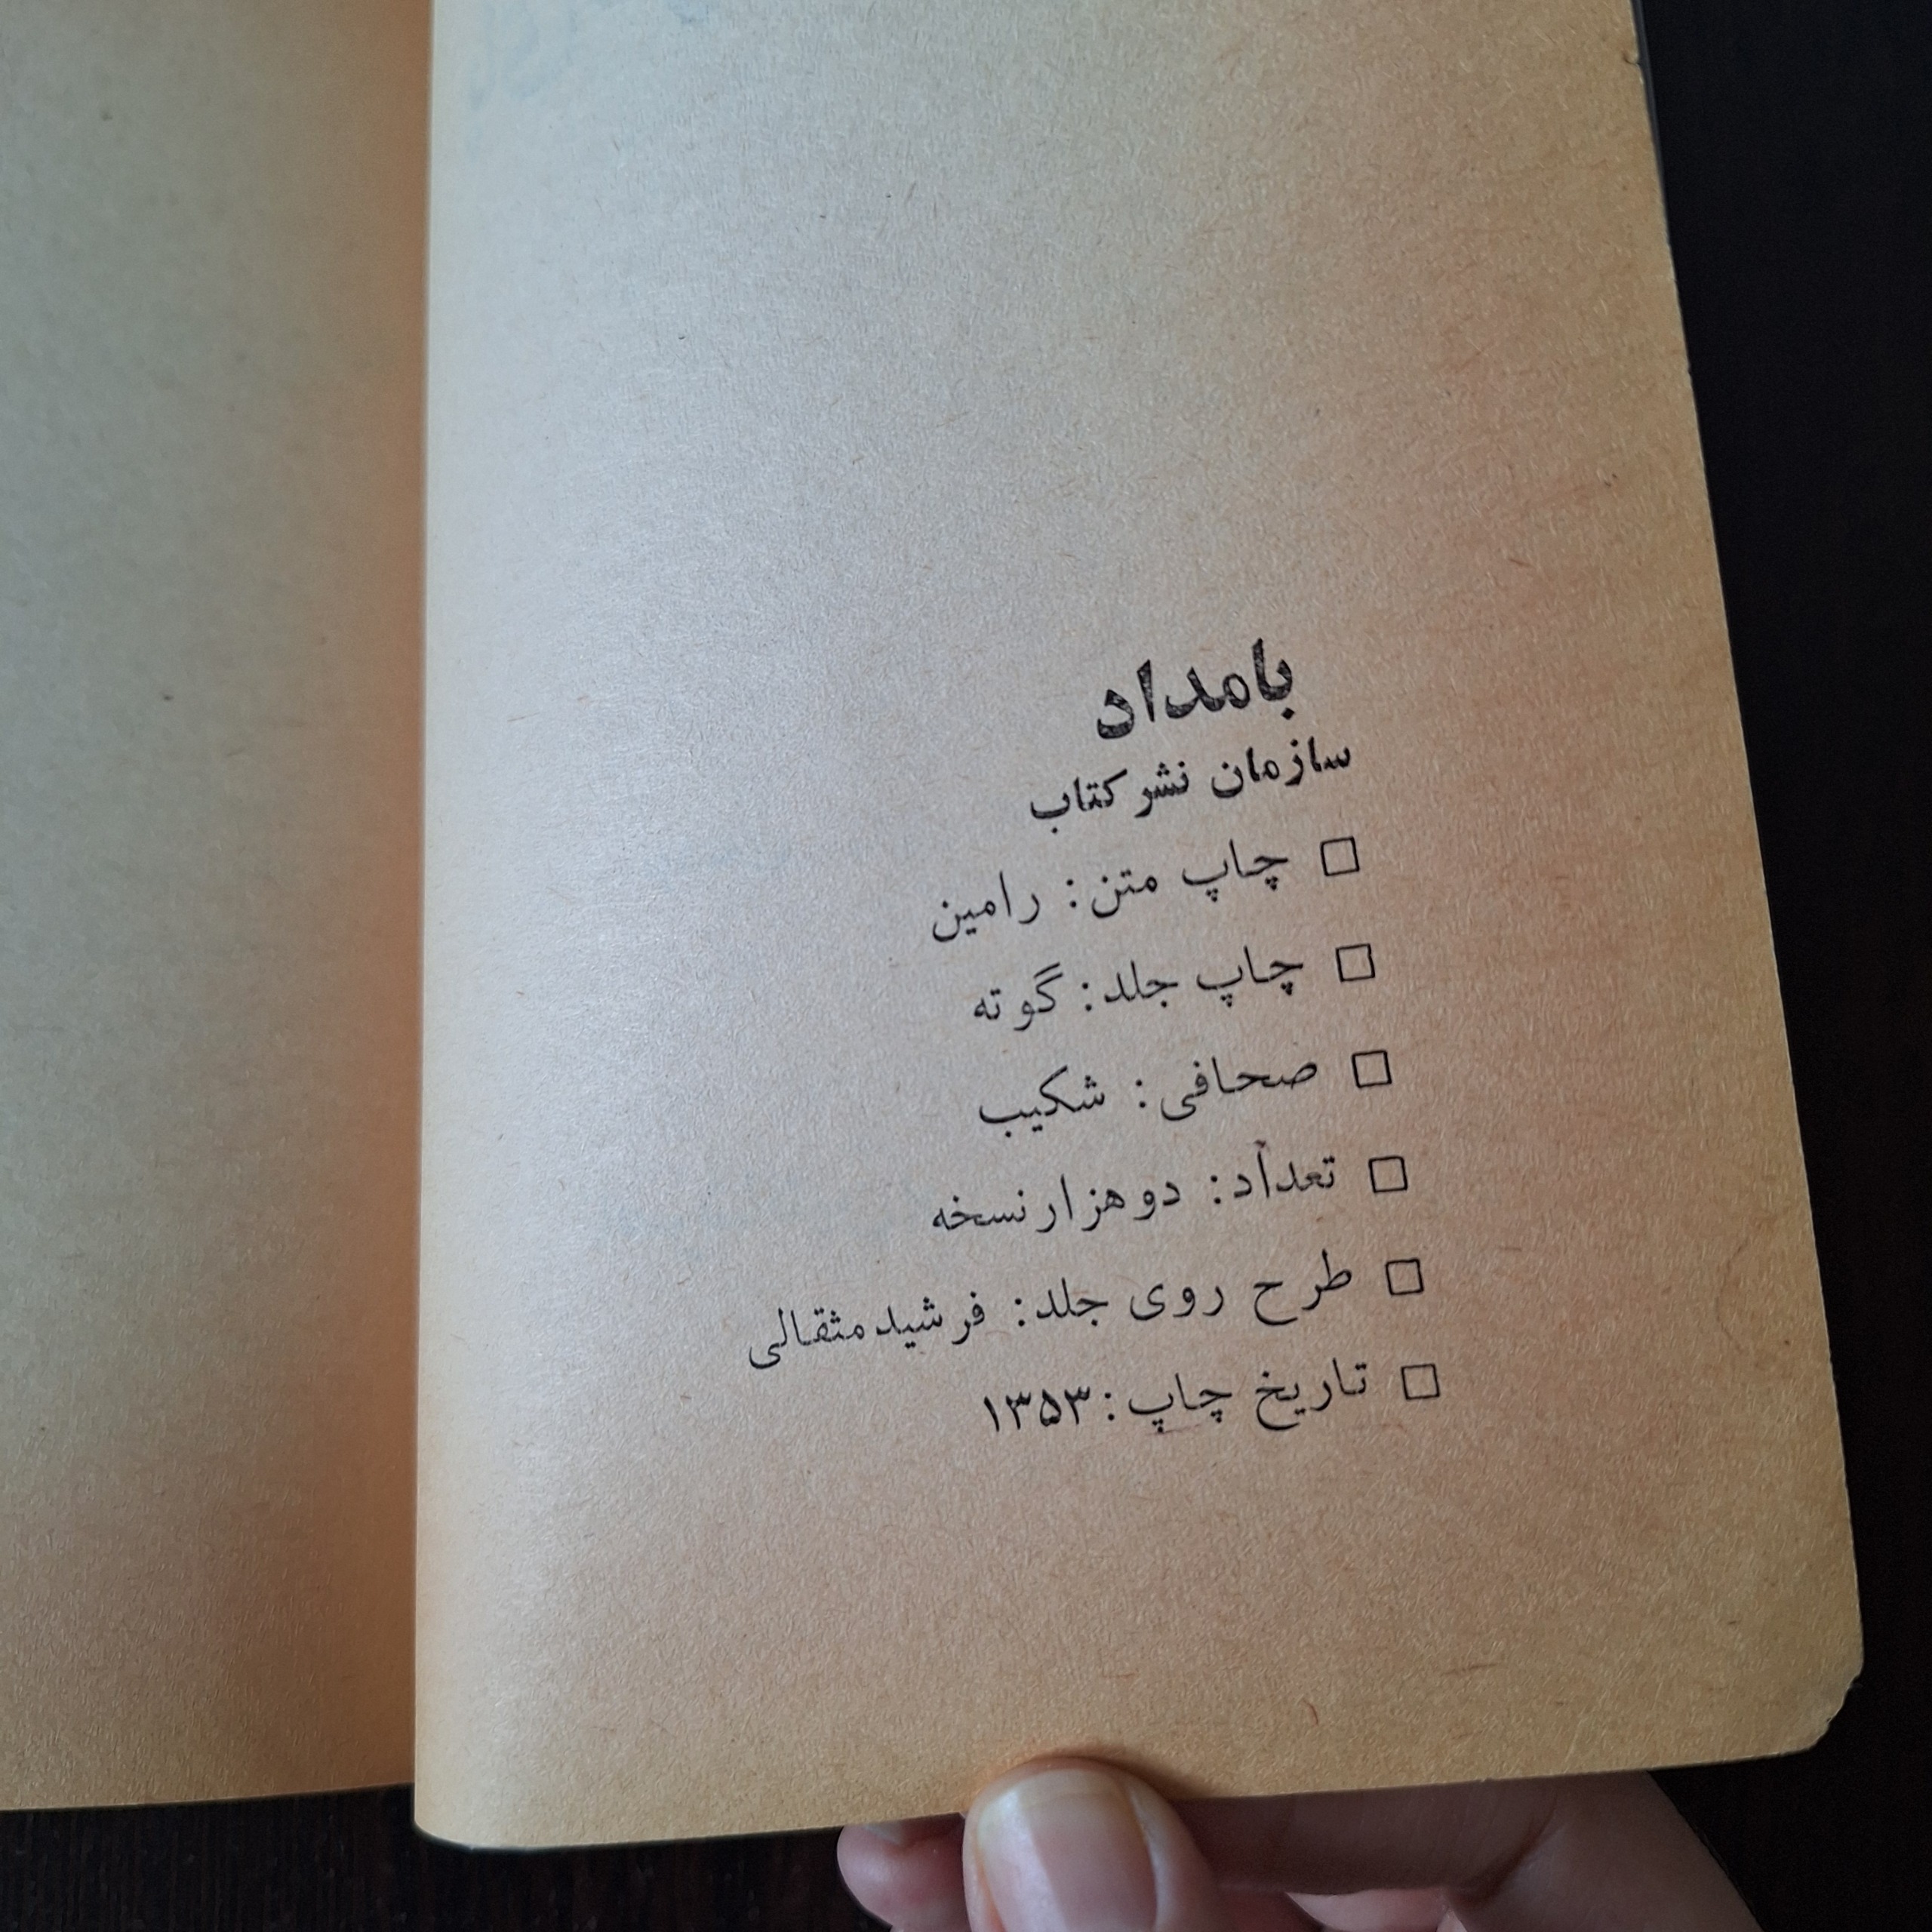 بامداد
سازمان نشر کتاب
□ چاپ متن: رامین
□ چاپ جلد: گوته
□ صحافی: شکیب
□ تعداد: دو هزار نسخه
□ طرح روی جلد: فرشید مثقالی
□ تاریخ چاپ: ۱۳۵۳